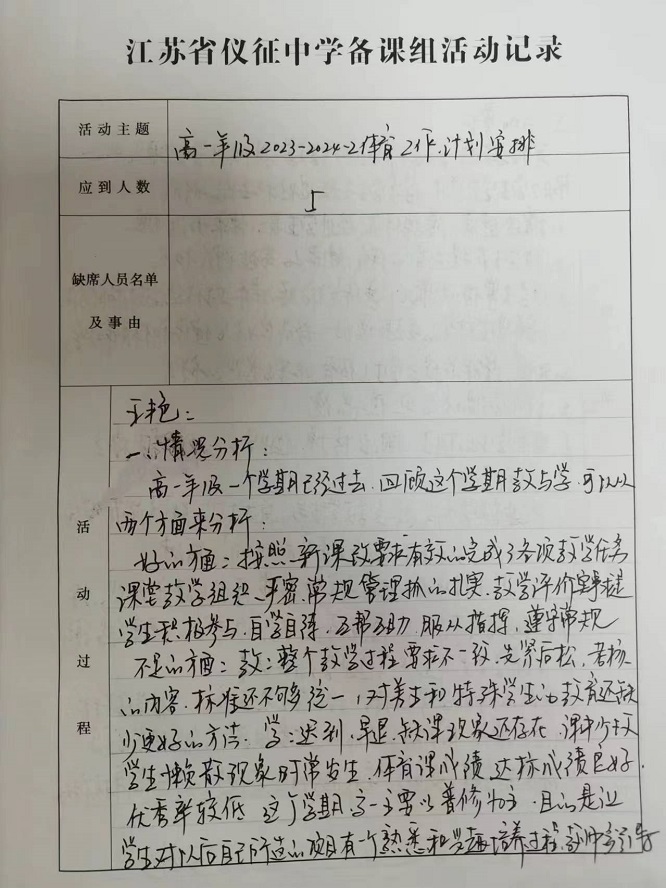 江苏省仪征中学备课组活动记录
活动主题
高一年级2023-2024-2体育工作计划安排
应到人数
5
缺席人员名单
及事由
活动过程
王艳：
一、情况分析：
高一年级一个学期已经过去.回顾这个学期教与学.可以从
两个方面来分析：
好的方面：按照新课改要求有效的完成了各项教学任务
课堂教学组织严密.常规管理抓的扎实.教学评价
学生积极参与.自学自练.互帮互助.服从指挥.遵守常规
不足的方面：教：整个教学过程要求不一致.先紧后松.考核
的内容.标准还不够统一，对差生和特殊学生的教育还缺
少更好的方法.学：迟到.早退.缺课现象还存在.课中少数
学生懒散现象时常发生.体育课成绩达标成绩良好.
优秀率较低.这个学期高一主要以普修为主.目的是让
学生对以后自己所选的项目有一个熟悉和兴趣培养过程.教师会引导